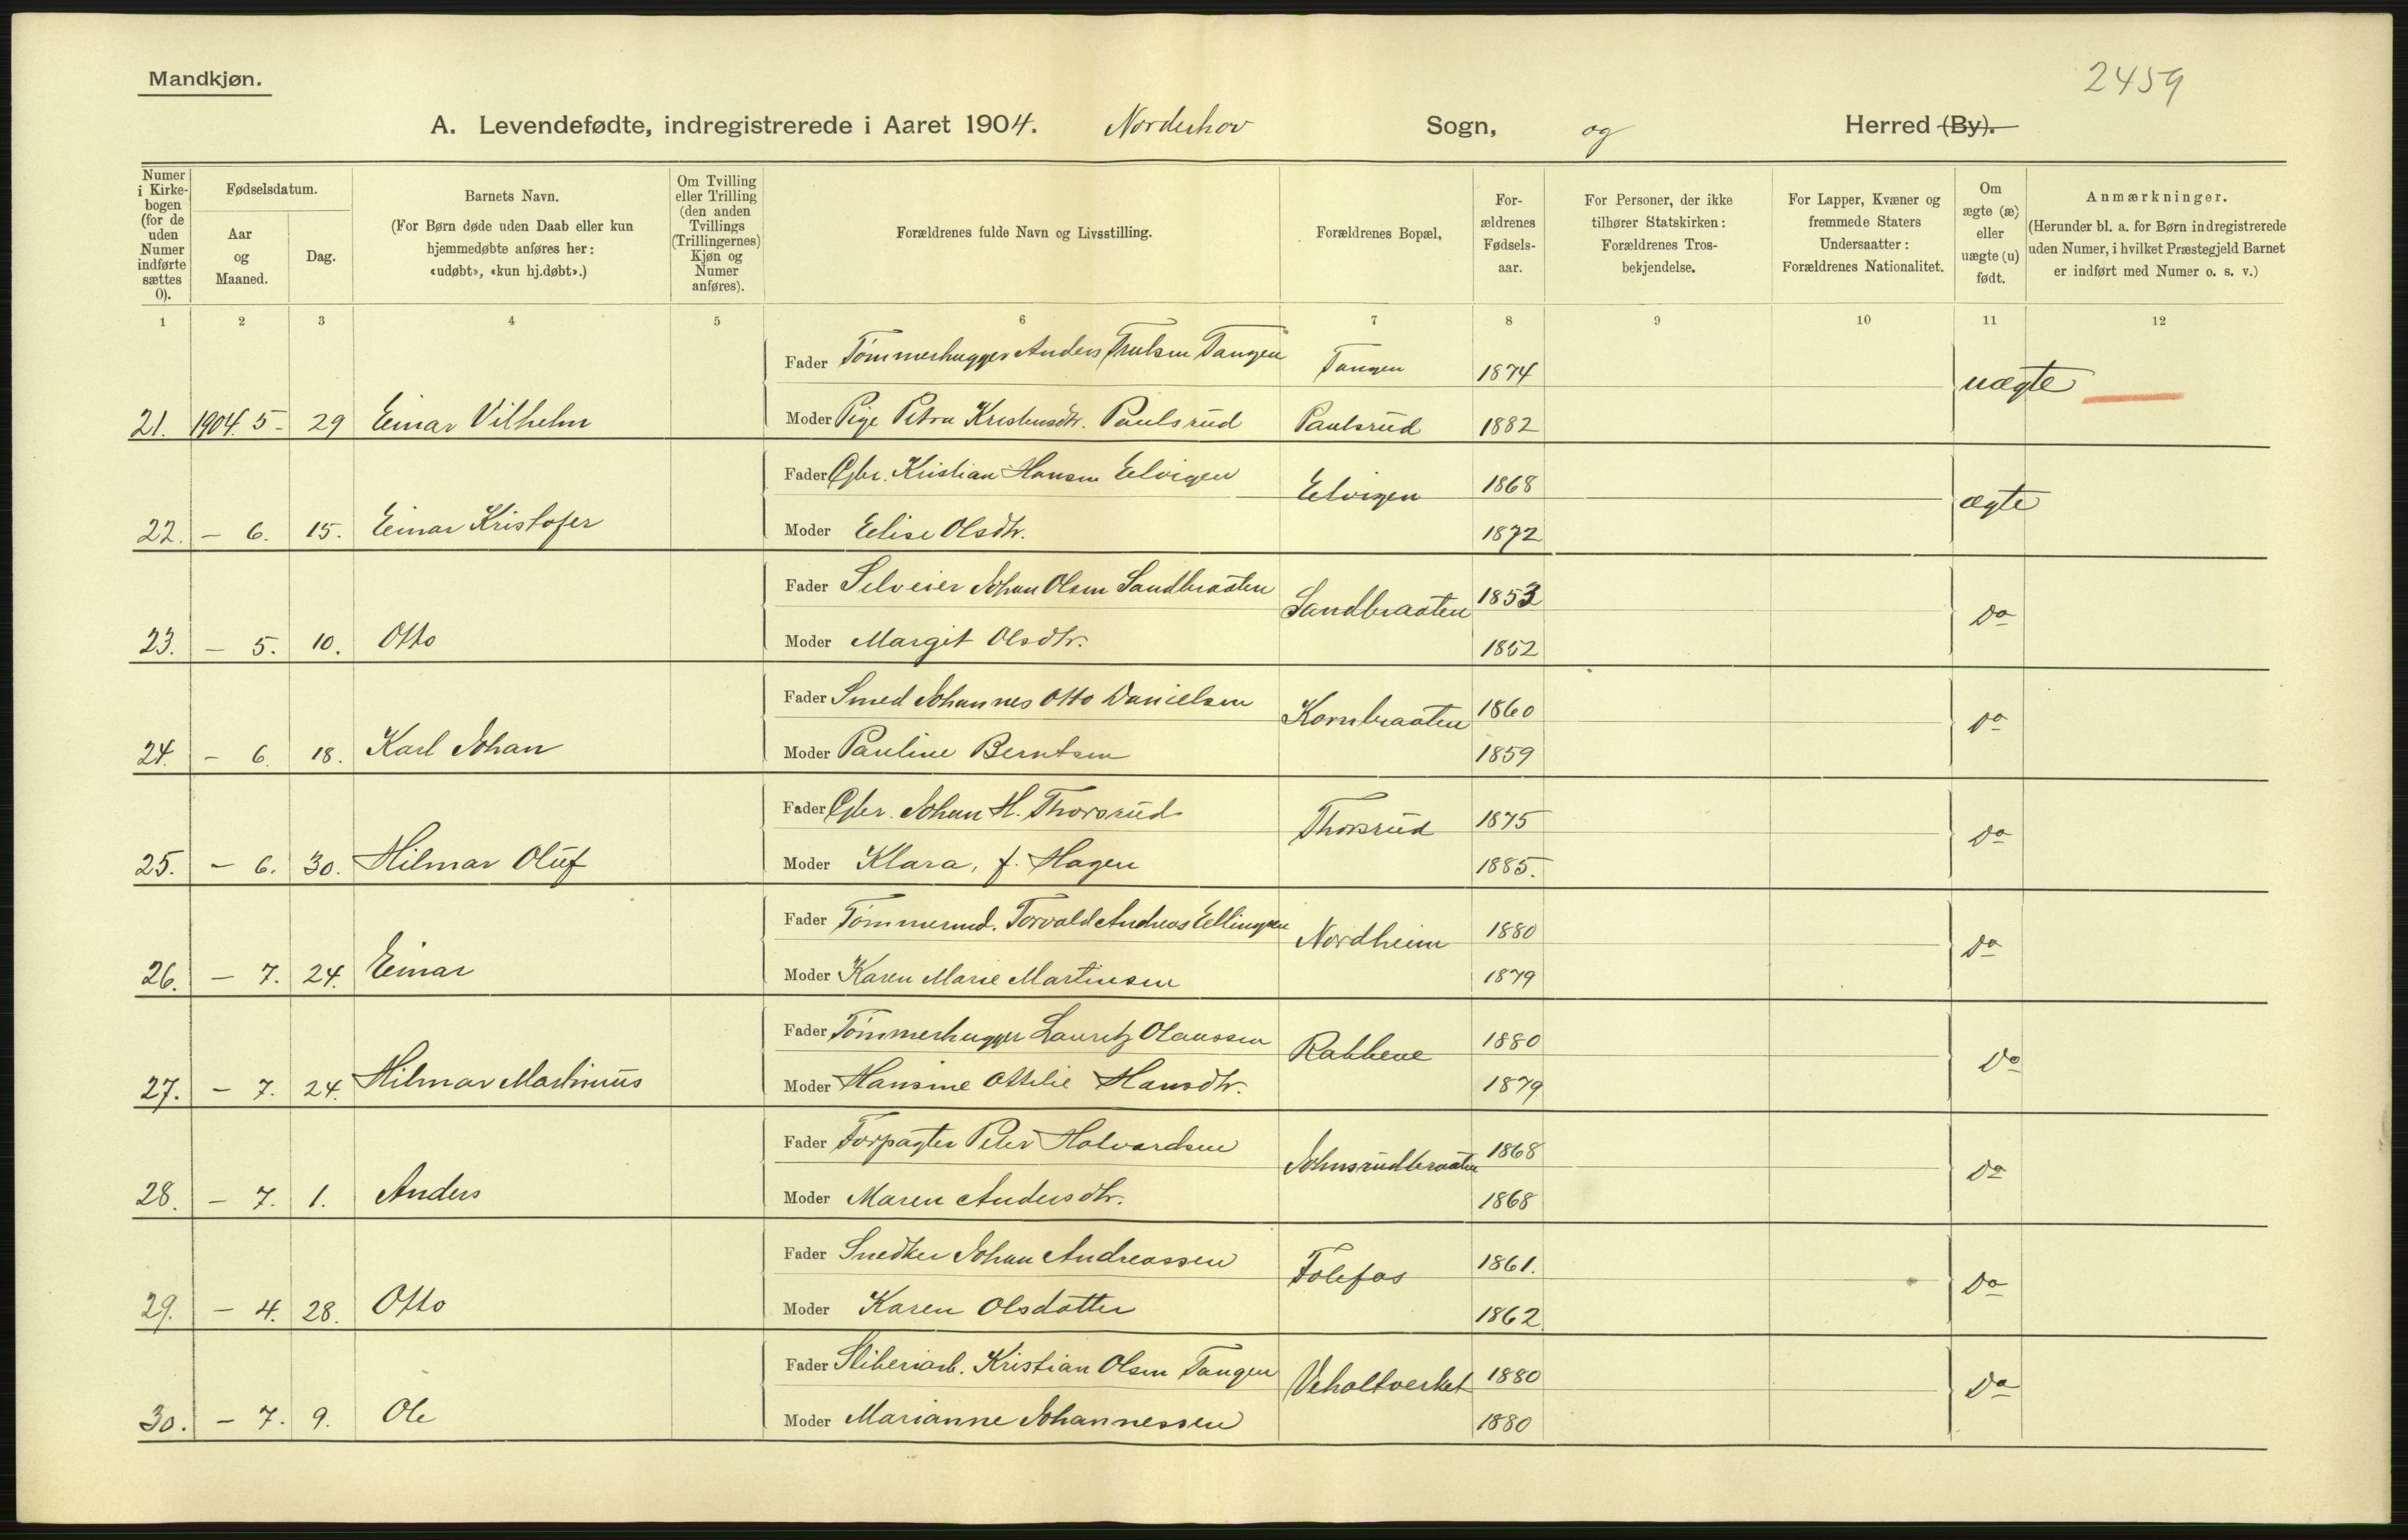 2459
Mandkjøn.
A. Levendefødte, indregistrerede i Aaret 1904. Norderhov Sogn, og Herred (By).
Numer i Kirkebogen (for de uden Numer indførte sættes 0).
Fødselsdatum.
Aar og Maaned.
Dag.
Barnets Navn.
(For Børn døde uden Daab eller kun hjemmedøbte anføres her: «udøbt», «kun hj.døbt».)
Om Tvilling eller Trilling (den anden Tvillings (Trillingernes) Kjøn og Numer anføres).
Forældrenes fulde Navn og Livsstilling.
Forældrenes Bopæl,
Forældrenes Fødselsaar.
For Personer, der ikke tilhører Statskirken: Forældrenes Trosbekjendelse.
For Lapper, Kvæner og fremmede Staters Undersaatter: Forældrenes Nationalitet.
Om ægte (æ) eller uægte (u) født.
Anmærkninger.
(Herunder bl. a. for Børn indregistrerede uden Numer, i hvilket Præstegjeld Barnet er indført med Numer o. s. v.)
1 2 3 4 5 6 7 8 9 10 11 12
Fader Tømmerhugger Anders Trulsen Tangen Tangen 1874 uægte
21. 1904. 5 - 29 Einar Vilhelm Moder Pige Petra Kristensdtr. Paulsrud Paulsrud 1882
Fader Gbr. Kristian Hansen Elvigen Elvigen 1868 ægte
22. - 6. 15. Einar Kristofer Moder Elise Olsdtr. 1872
Fader Selveier Johan Olsen Sandbraaten Sandbraaten 1853 do
23. - 5. 10. Otto Moder Margit Olsdtr. 1852
Fader Smed Johannes Otto Danielsen Kornbraaten 1860 do
24. - 6. 18. Karl Johan Moder Pauline Berntsen 1859
Fader Gbr. Johan H. Thorsrud Thorsrud 1875 do
25. - 6. 30. Hilmar Oluf Moder Klara, f. Hagen 1885.
Fader Tømmermd. Torvald Andreas Ellingsen Nordheim 1880 do
26. - 7. 24. Einar Moder Karen Marie Martinsen 1879
Fader Tømmerhugger Lauritz Olaussen Rakkene 1880 do
27. - 7. 24. Hilmar Martinius Moder Hansine Ottilie Hansdtr. 1879
Fader Forpagter Peter Halvardsen Johnsrudbraaten 1868 do
28. - 7. 1. Anders Moder Maren Andersdtr. 1868
Fader Snedker Johan Andreassen Follefos 1861. do
29. - 4. 28. Otto Moder Karen Olsdatter 1862
Fader Sliberiarb. Kristian Olsen Tangen Veholtverket 1880 do
30. - 7. 9. Ole Moder Marianne Johannessen 1880